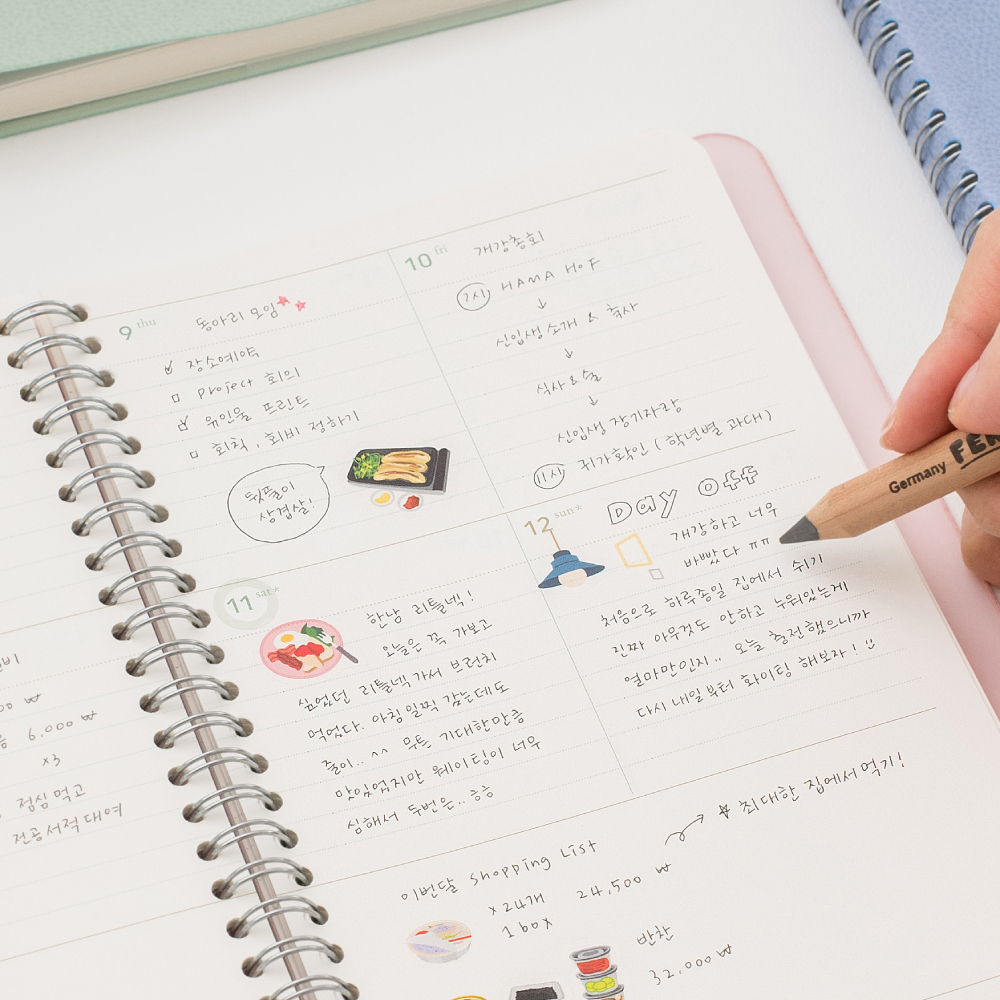 9 thu 동아리 모임
장소예약
project 회의
유인물 프린트
회칙, 회비 정하기
뒷풀이
삼겹살!
10 fri 개강총회
7시 HANA HOF
↓
신입생소개 & 축사
↓
식사 & 술
↓
신입생 장기자랑
11시 귀가확인 (학년별 과대)
11 sat*
한남 리틀넥!
오늘은 꼭 가보고
싶었던 리틀넥 가서 브런치
먹었다. 아침 일찍 갔는데도
줄이.. ^^ 무튼 기대한만큼
맛있었지만 웨이팅이 너무
심해서 두번은.. 흠흠
12 sun*
Day off
개강하고 너무
바빴다 ㅠㅠ
처음으로 하루종일 집에서 쉬기
진짜 아무것도 안하고 누워있는게
얼마만인지.. 오늘 충전했으니까
다시 내일부터 화이팅 해보자!
이번달 shopping List
최대한 집에서 먹기!
x 24개 24,500 ₩
1 box
반찬
32,000 ₩
6,000 ₩
x3
점심 먹고
전공서적 대여
Germany